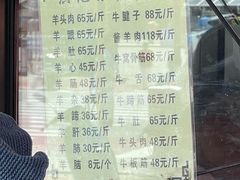 羊头肉 65元/斤 牛腱子 88元/斤
羊 65元/斤 酱羊肉 118元/斤
羊 肚 65元/斤
羊 心 45元/斤 牛窝骨筋 68元/斤
羊 筋 48元/斤 牛 舌 68元/斤
羊 杂 38元/斤 牛蹄筋 48元/斤
羊 蹄 38元/斤 牛 肚 65元/斤
羊 肝 36元/斤
羊 肺 30元/斤 牛头肉 48元/斤
羊 脑 8元/个 牛板筋 48元/斤